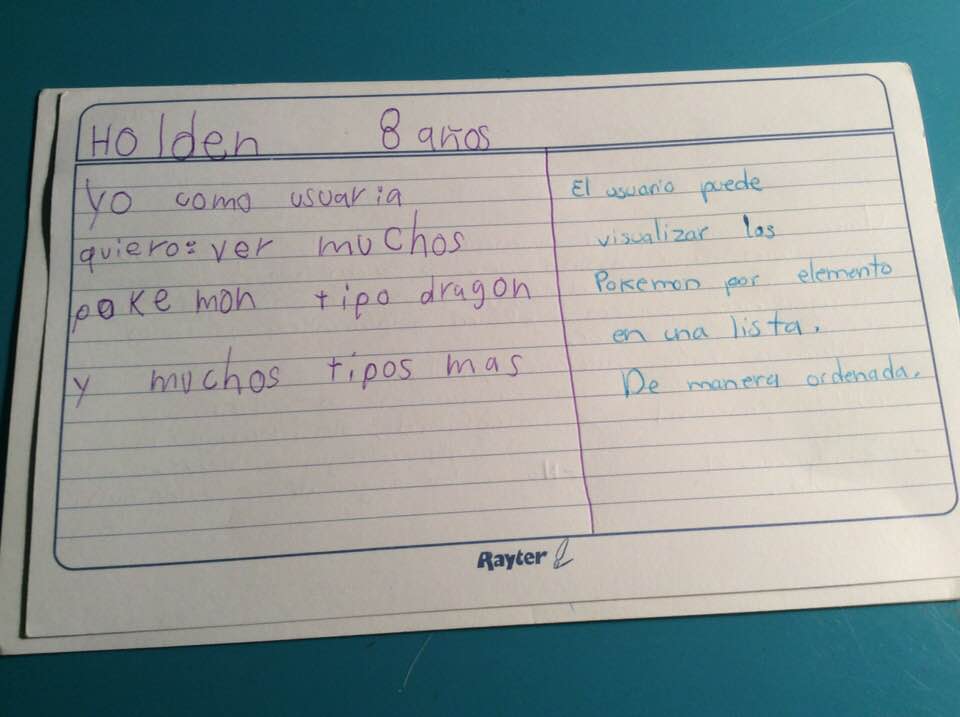 Holden 8 años
Yo como usuaria
quiero: ver muchos
pokemon tipo dragon
y muchos tipos mas
El usuario puede
visualizar los
Pokemon por elemento
en una lista.
De manera ordenada.
Rayter